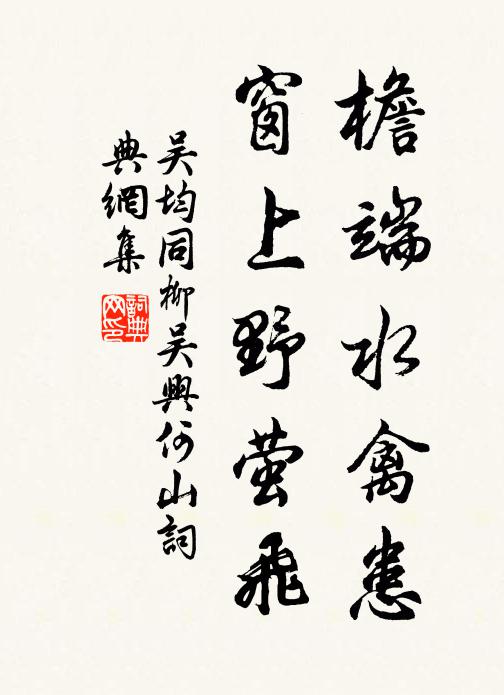 檐端水禽患
窗上野萤飛
吴均同柳吴興何山詞
典網集
詞典
网印